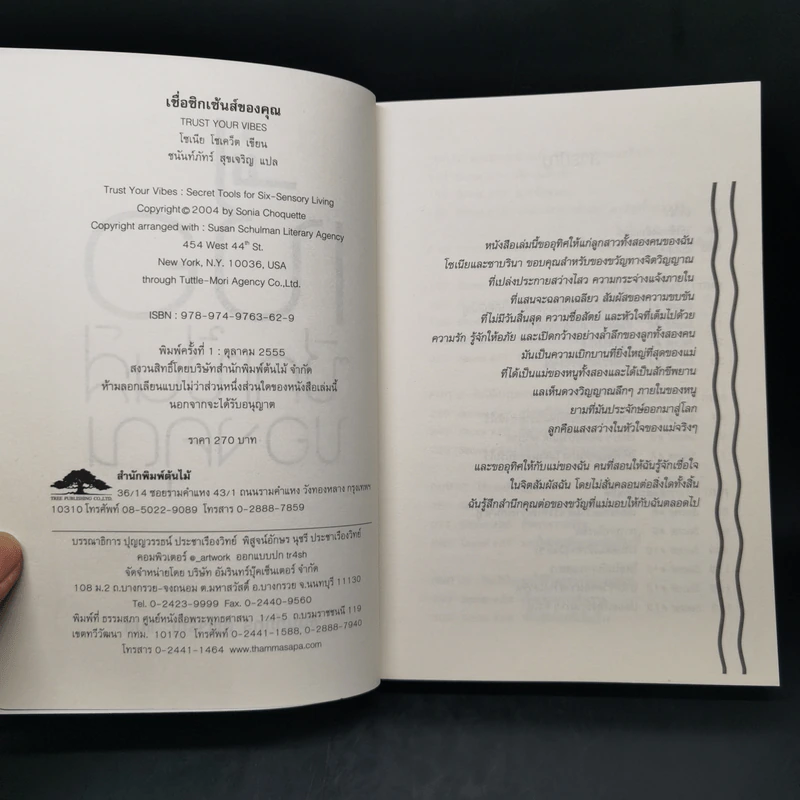 เชื่อซิกเซ้นส์ของคุณ
TRUST YOUR VIBES
โซเนีย โชเควิ็ต เขียน
ชนันท์ภัทร์ สุขเจริญ แปล
Trust Your Vibes : Secret Tools for Six-Sensory Living
Copyright © 2004 by Sonia Choquette
Copyright arranged with : Susan Schulman Literary Agency
454 West 44th St.
New York, N.Y. 10036, USA
through Tuttle-Mori Agency Co.,Ltd.
ISBN : 978-974-9763-62-9
พิมพ์ครั้งที่ 1 : ตุลาคม 2555
สงวนสิทธิ์โดยบริษัทสำนักพิมพ์ต้นไม้ จำกัด
ห้ามลอกเลียนแบบไม่ว่าส่วนหนึ่งส่วนใดของหนังสือเล่มนี้
นอกจากจะได้รับอนุญาต
ราคา 270 บาท
สำนักพิมพ์ต้นไม้
TREE PUBLISHING CO.,LTD.
36/14 ซอยรามคำแหง 43/1 ถนนรามคำแหง วังทองหลาง กรุงเทพฯ
10310 โทรศัพท์ 08-5022-9089 โทรสาร 0-2888-7859
บรรณาธิการ ปุญญวรรธน์ ประชาเรืองวิทย์ พิสูจน์อักษร นุชรี ประชาเรืองวิทย์
คอมพิวเตอร์ e_artwork ออกแบบปก tr4sh
จัดจำหน่ายโดย บริษัท อัมรินทร์บุ๊คเซ็นเตอร์ จำกัด
108 ม.2 ถ.บางกรวย-จงถนอม ต.มหาสวัสดิ์ อ.บางกรวย จ.นนทบุรี 11130
Tel. 0-2423-9999 Fax. 0-2440-9560
พิมพ์ที่ ธรรมสภา ศูนย์หนังสือพระพุทธศาสนา 1/4-5 ถ.บรมราชชนนี 119
เขตทวีวัฒนา กทม. 10170 โทรศัพท์ 0-2441-1588, 0-2888-7940
โทรสาร 0-2441-1464 www.thammasapa.com
หนังสือเล่มนี้ขออุทิศให้แก่ลูกสาวทั้งสองคนของฉัน
โซเนียและซาบรินา ขอบคุณสำหรับของขวัญทางจิตวิญญาณ
ที่เปล่งประกายสว่างไสว ความกระจ่างแจ้งภายใน
ที่แสนจะฉลาดเฉลียว สัมผัสของความขบขัน
ที่ไม่มีวันสิ้นสุด ความซื่อสัตย์ และหัวใจที่เต็มไปด้วย
ความรัก รู้จักให้อภัย และเปิดกว้างอย่างล้ำลึกของลูกทั้งสองคน
มันเป็นความเบิกบานที่ยิ่งใหญ่ที่สุดของแม่
ที่ได้เป็นแม่ของหนูทั้งสองและได้เป็นสักขีพยาน
แลเห็นดวงวิญญาณลึกๆ ภายในของหนู
ยามที่มันประจักษ์ออกมาสู่โลก
ลูกคือแสงสว่างในหัวใจของแม่จริงๆ
และขออุทิศให้กับแม่ของฉัน คนที่สอนให้ฉันรู้จักเชื่อใจ
ในจิตสัมผัสฉัน โดยไม่สั่นคลอนต่อสิ่งใดทั้งสิ้น
ฉันรู้สึกสำนึกคุณต่อของขวัญที่แม่มอบให้กับฉันตลอดไป